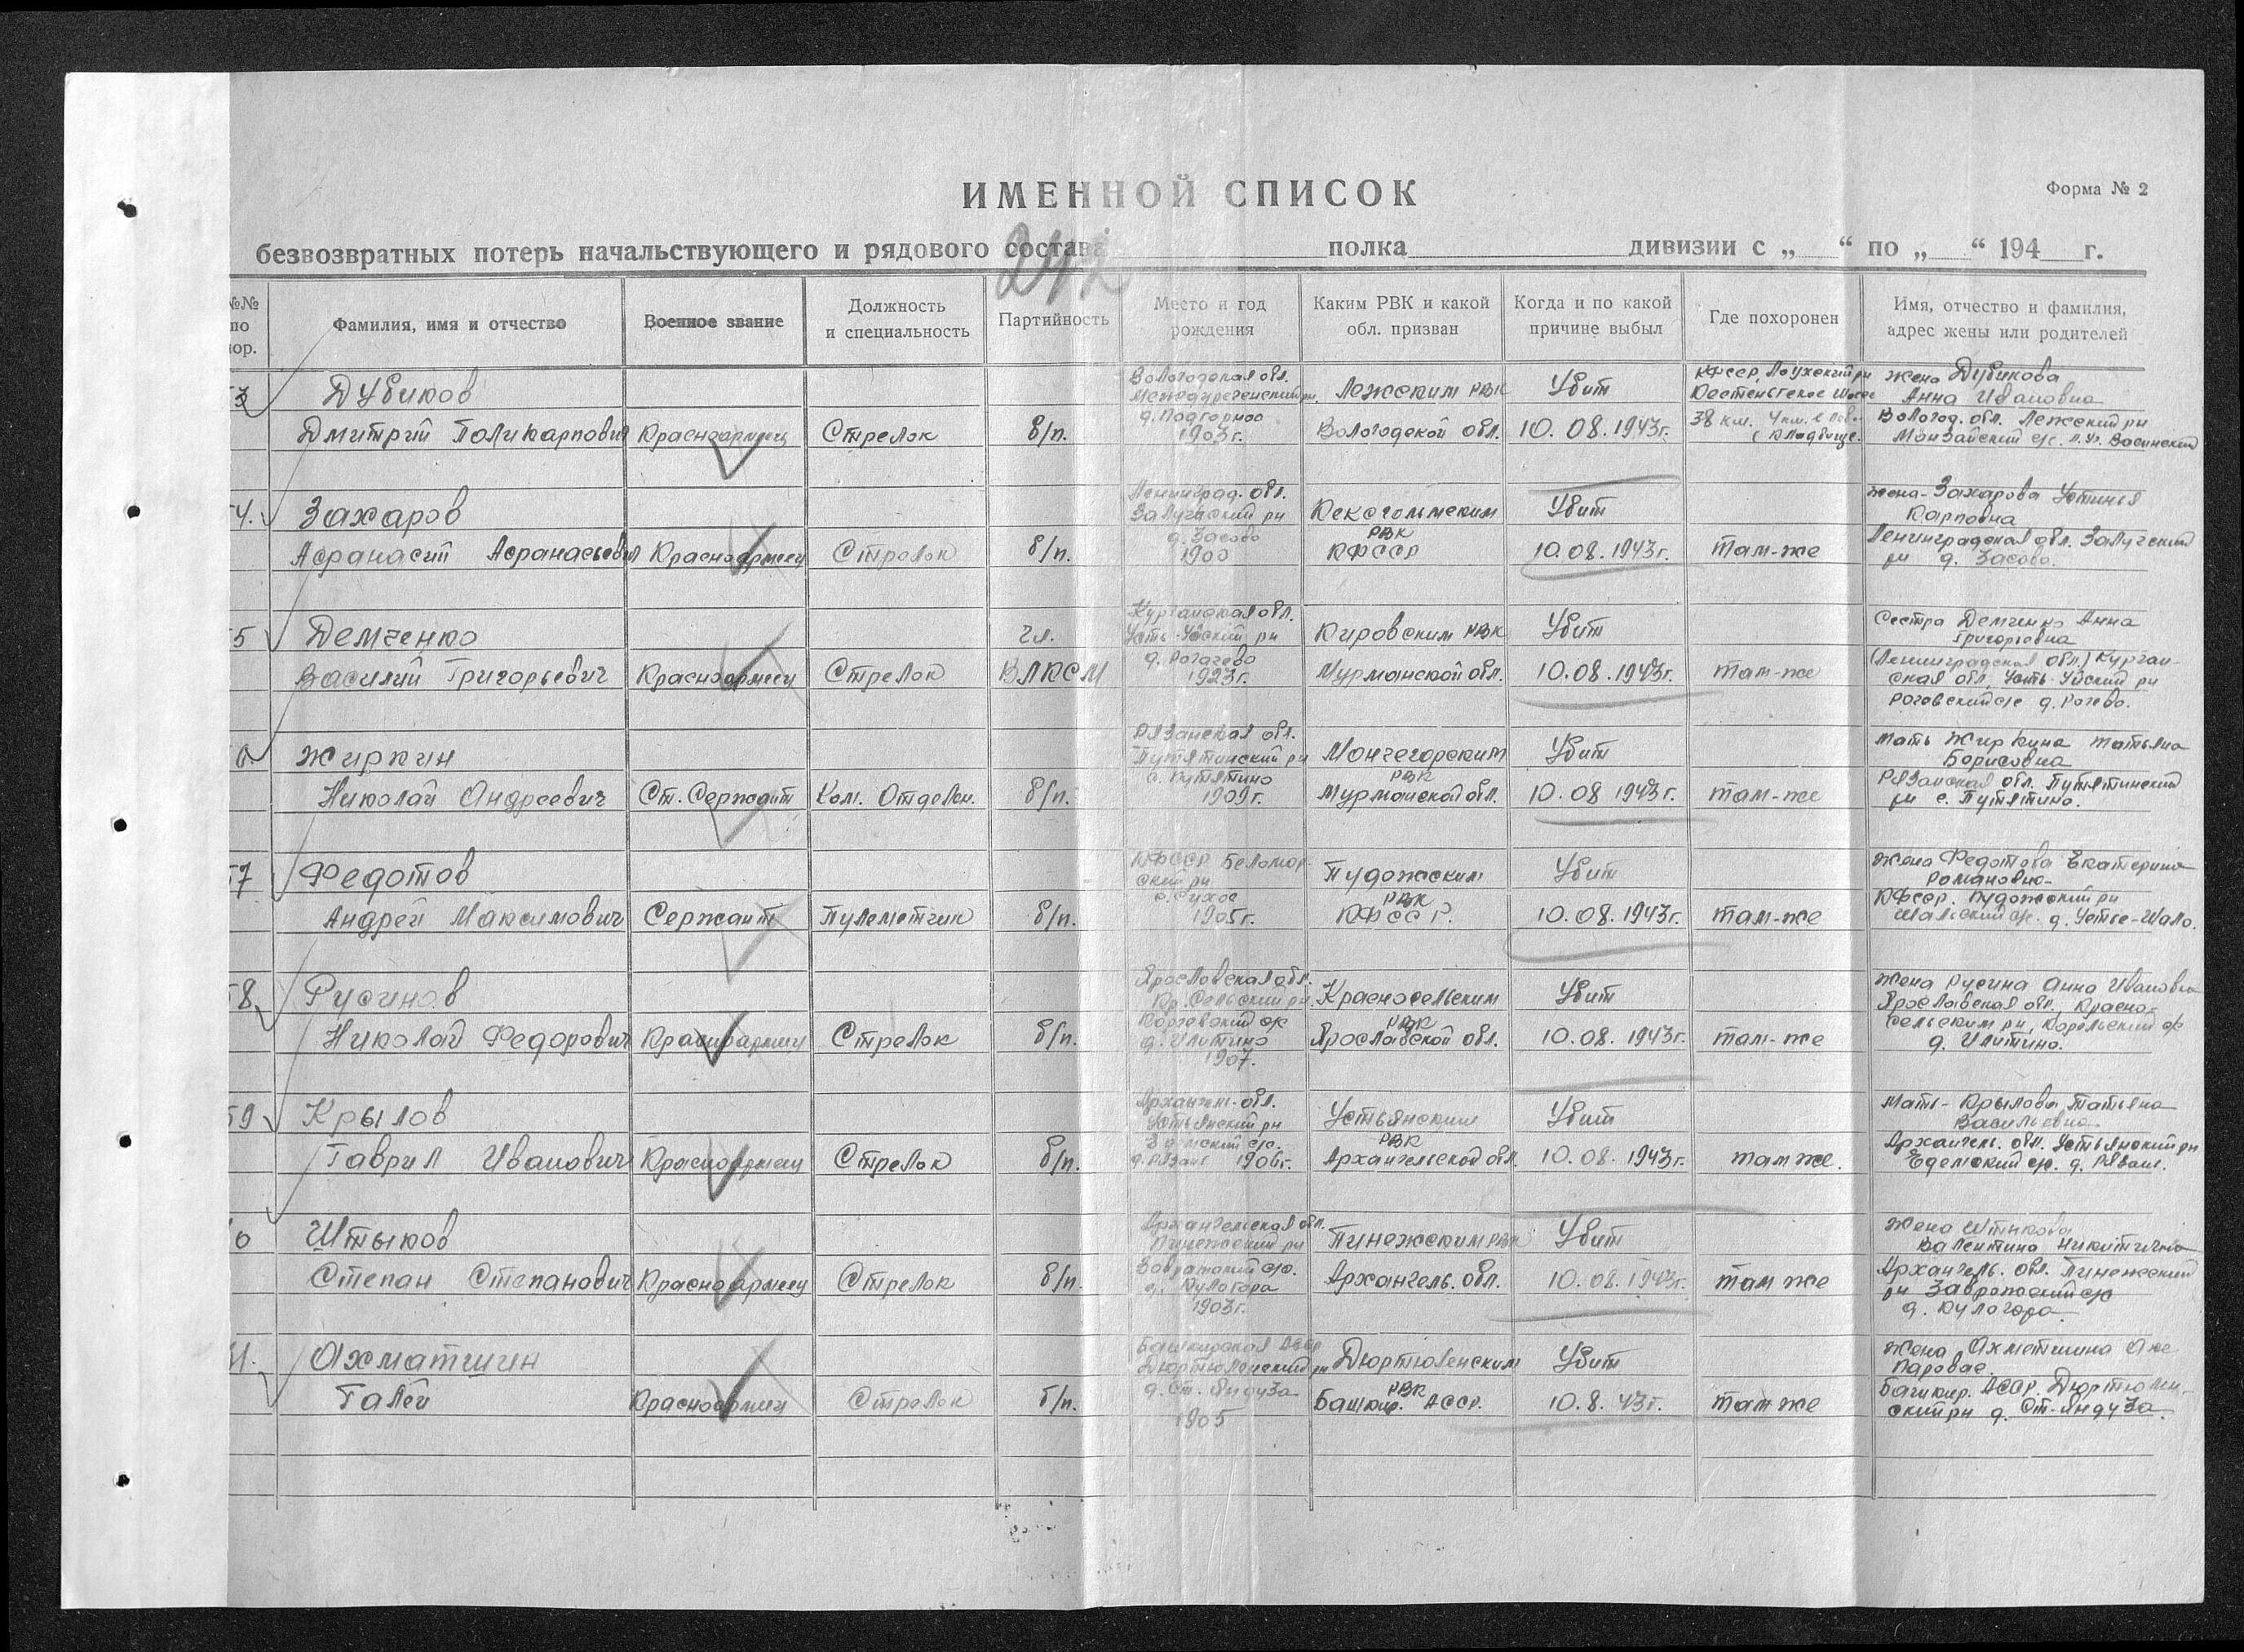 ИМЕННОЙ СПИСОК
Форма № 2
безвозвратных потерь начальствующего и рядового состава полка дивизии с „ “ по „ “ 194 г.
№№ по пор.
Фамилия, имя и отчество
Военное звание
Должность и специальность
Партийность
Место и год рождения
Каким РВК и какой обл. призван
Когда и по какой причине выбыл
Где похоронен
Имя, отчество и фамилия, адрес жены или родителей
Дубиков
Дмитрий Поликарпович
Красноармеец
Стрелок
б/п.
Вологодская обл.
Междуреченский рн.
д. Подгорное
1903г.
Лежским РВК
Вологодской обл.
Убит
10.08.1943г.
КФССР, Лоухский рн
Кестеньгское Шоссе
38 км.
Кладбище.
жена Дубикова
Анна Ивановна
Вологод. обл. Лежский рн
4.
Захаров
Афанасий Афанасьевич
Красноармеец
Стрелок
б/п.
Ленинград. обл.
Залучский рн
д. Засово
1900
Кексгольмским
РВК
КФССР
Убит
10.08.1943г.
там-же
жена-Захарова Устинья
Карповна
Ленинградская обл. Залучский
рн д. Засово.
5
Демченко
Василий Григорьевич
Красноармеец
Стрелок
чл.
ВЛКСМ
Курганская обл.
Усть-Уйский рн
д. Рогачево
1923г.
Кировским РВК
Мурманской обл.
Убит
10.08.1943г.
там-же
Сестра Демченко Анна
Григорьевна
(Ленинградская обл.) Курган-
ская обл. Усть-Уйский рн
Роговский с/с д. Рогево.
Жиркин
Николай Андреевич
Ст. Сержант
Ком. Отделен.
б/п.
Рязанская обл.
Путятинский рн
с. Путятино
1909г.
Мончегорским
РВК
Мурманской обл.
Убит
10.08 1943г.
там-же
Мать Жиркина Татьяна
Борисовна
Рязанская обл. Путятинский
рн с. Путятино.
7
Федотов
Андрей Максимович
Сержант
Пулеметчик
б/п.
КФССР Беломор-
ский рн
с. Сухое
1905г.
Пудожским
РВК
КФССР.
Убит
10.08.1943г.
там-же
жена Федотова Екатерина
Романовна-
КФССР. Пудожский рн
Шальский с/с. д. Устье-Шало.
8
Русинов
Николай Федорович
Красноармеец
Стрелок
б/п.
Ярославская обл.
Кр. Сельский рн.
д. Илитино
1907.
Красносельским
РВК
Ярославской обл.
Убит
10.08.1943г.
там-же
жена Русина Анна Ивановна
Ярославская обл., Красно-
сельским рн,
д. Илитино.
59
Крылов
Гаврил Иванович
Красноармеец
Стрелок
б/п.
Архангел-обл.
Устьянский рн
Едемский с/с.
1906г.
Устьянским
РВК
Архангельской обл.
Убит
10.08.1943г.
там же.
Мать-Крылова Татьяна
Васильевна
Архангель. обл. Устьянский рн
Едемский с/с.
0
Штыков
Степан Степанович
Красноармеец
Стрелок
б/п.
Архангельская обл.
Пинежский рн
д. Кулогора
1903г.
Пинежским РВК
Архангель. обл.
Убит
10.08.1943г.
там же
жена Штыкова
Валентина Никитична
Архангель. обл. Пинежский
рн
д. Кулогора
Ахматшин
Галей
Красноармеец
Стрелок
б/п.
Башкирская АССР
Дюртюлинский рн
д. Ст. Яндуза
1905
Дюртюленским
РВК
Башкир. АССР.
Убит
10.8.43г.
там же
жена Ахметшина
Башкир. АССР. Дюртюлин-
ский рн д. Ст-Яндуза.